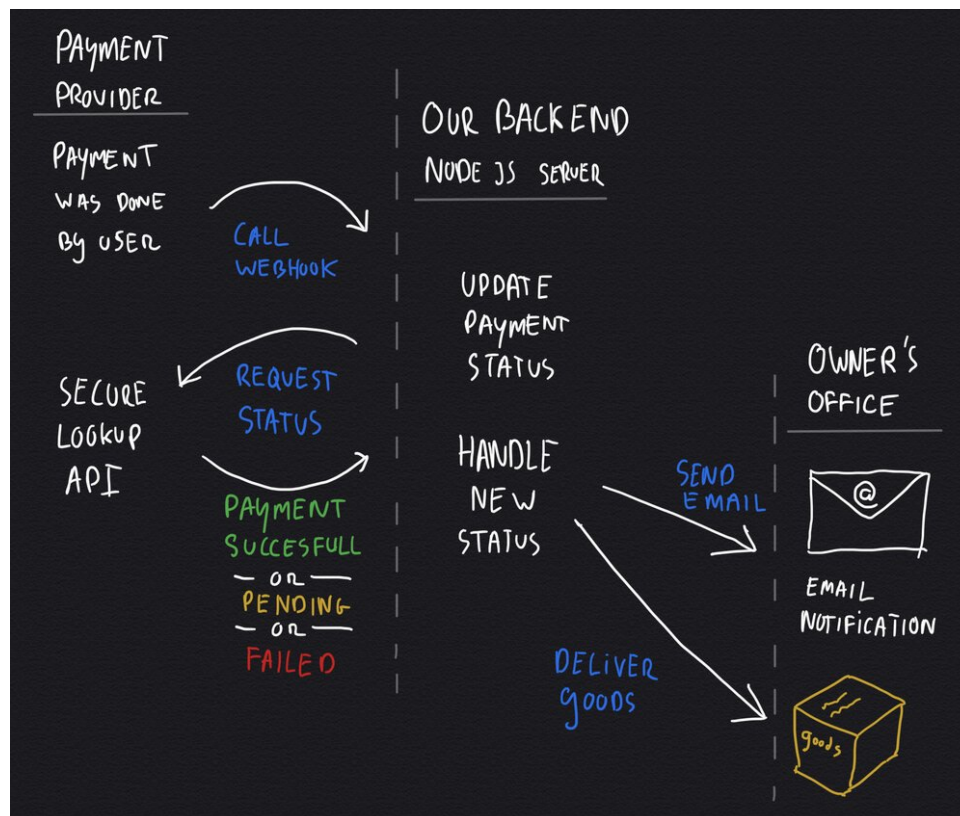 PAYMENT
PROVIDER
PAYMENT
WAS DONE
By USER
CALL
WEBHOOK
SECURE
LOOKUP
API
REQUEST
STATUS
PAYMENT
SUCCESFULL
OR
PENDING
OR
FAILED
OUR BACKEND
NODE JS SERVER
UPDATE
PAYMENT
STATUS
HANDLE
NEW
STATUS
SEND
EMAIL
DELIVER
GOODS
OWNER'S
OFFICE
@
EMAIL
NOTIFICATION
goods